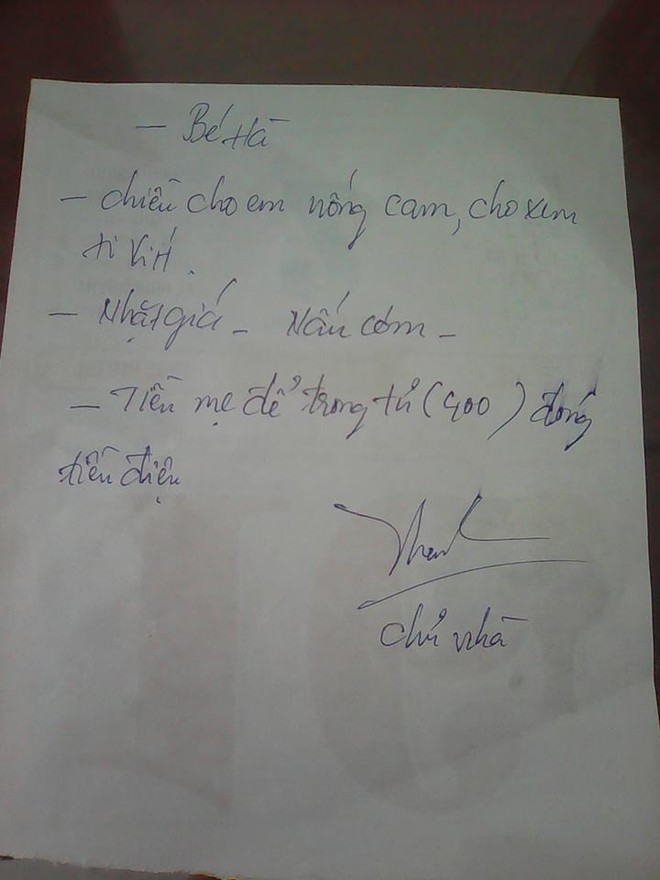 — Bé Hà
— chiều cho em uống cam, cho xem
ti vi tí.
— Nhặt giá — Nấu cơm —
— Tiền mẹ để trong tủ (400) đóng
tiền điện
chủ nhà